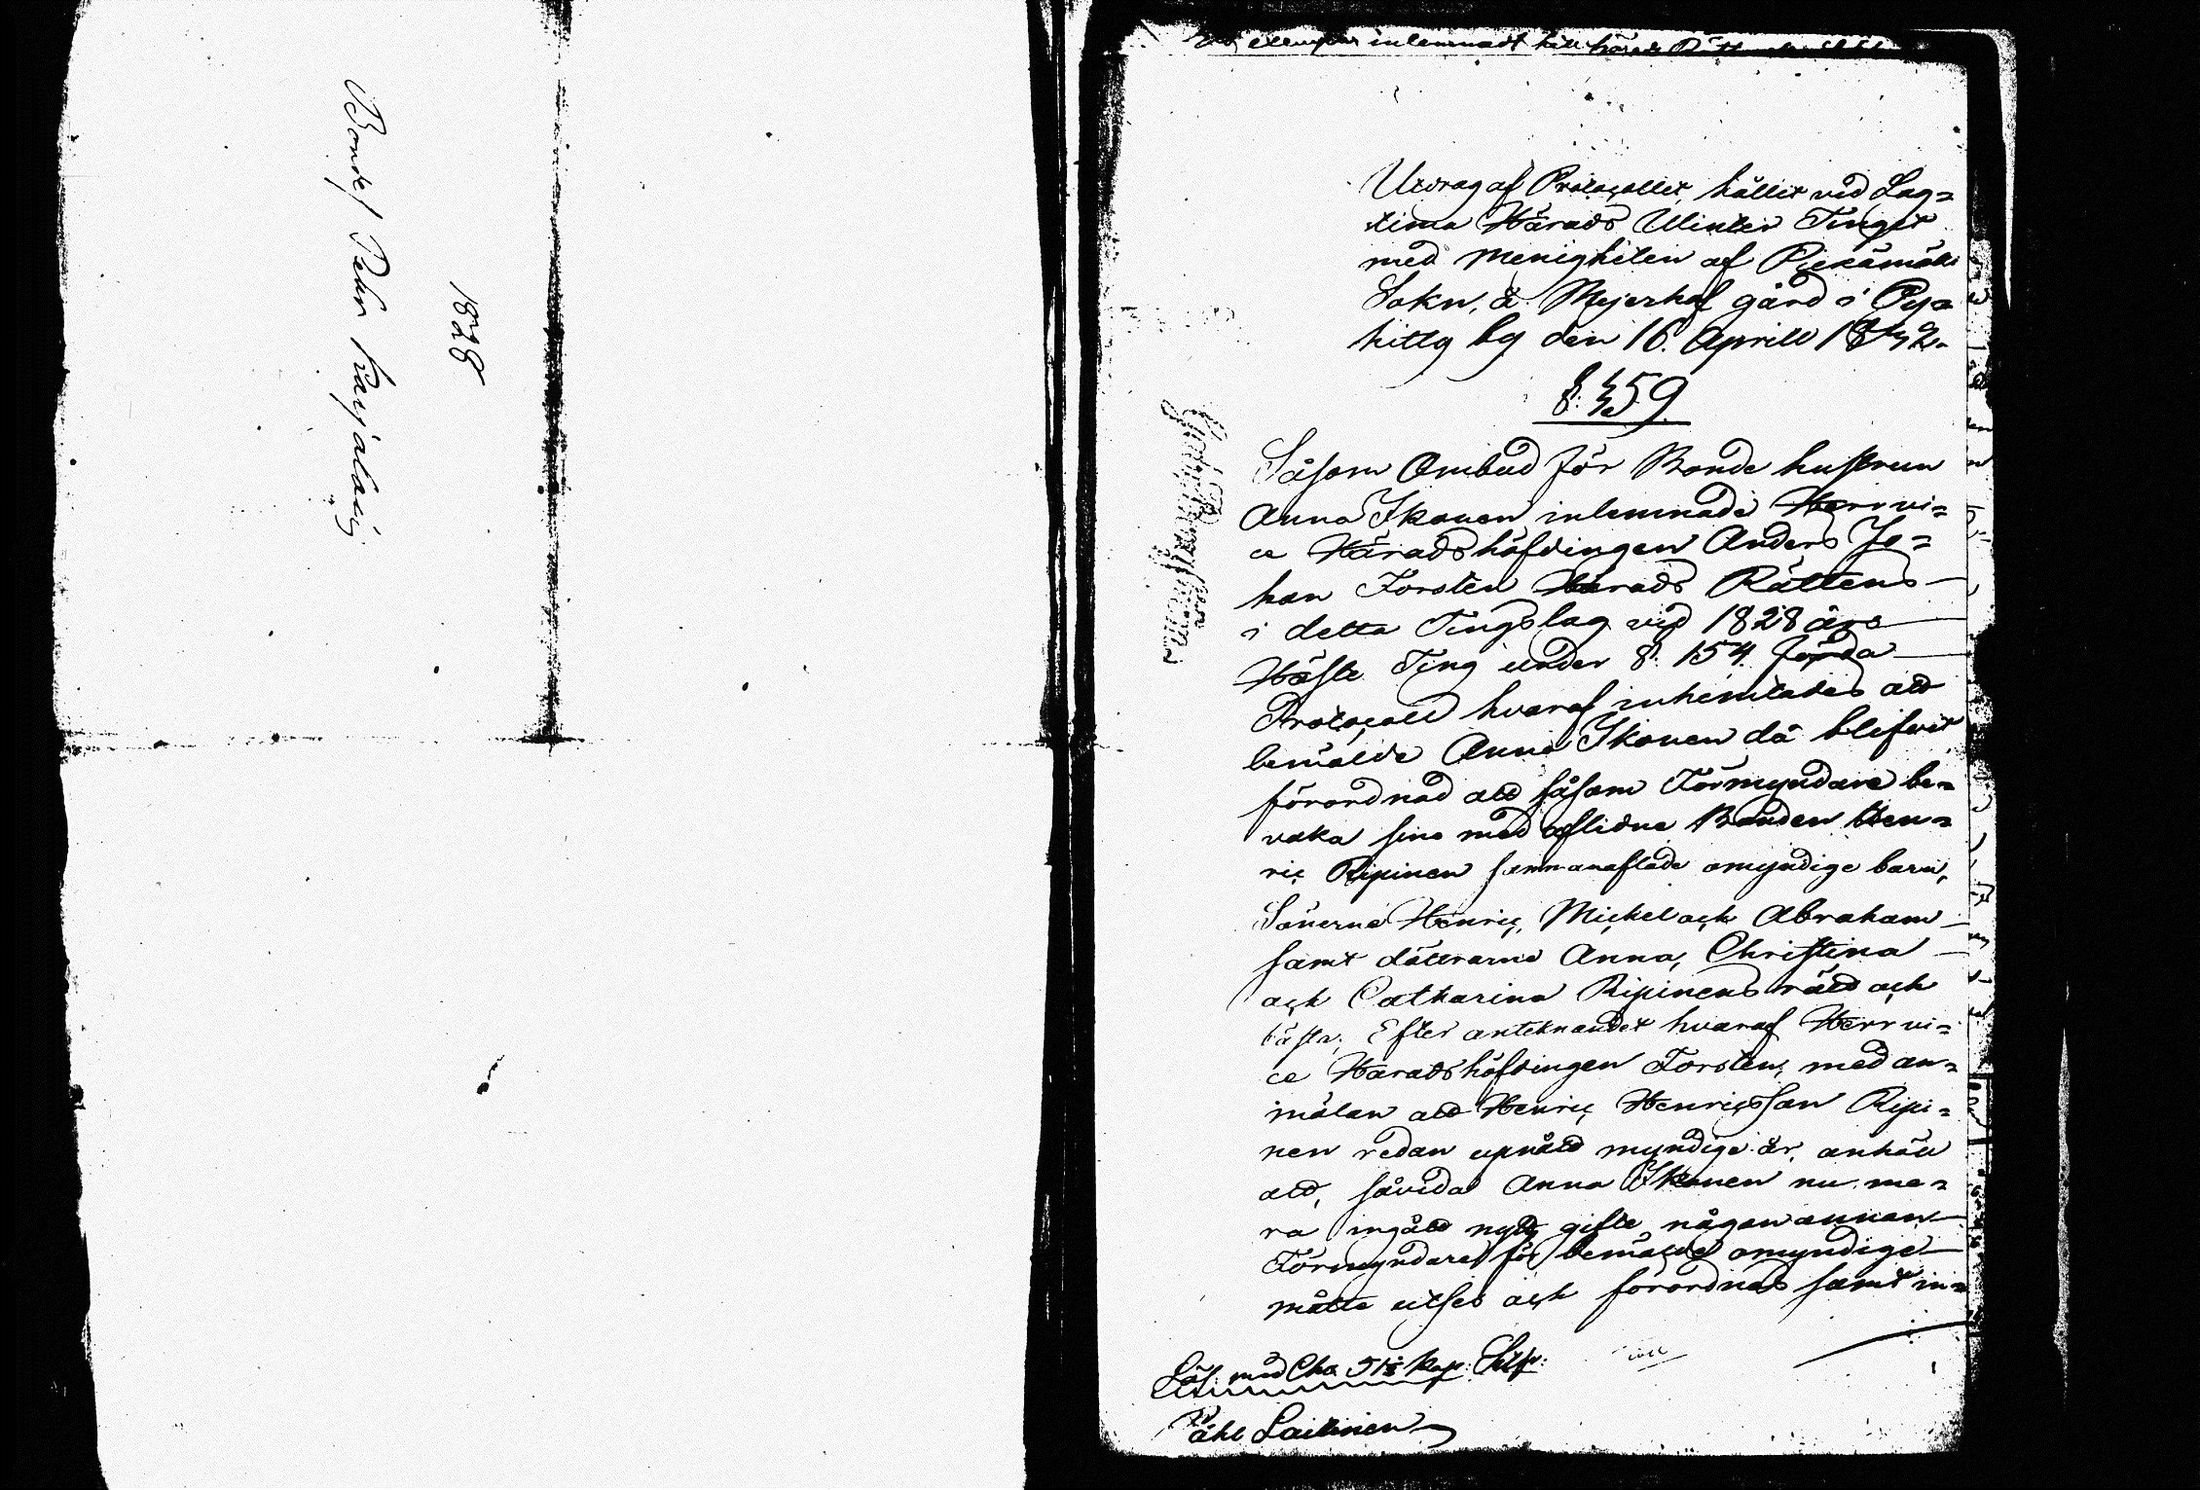 Bondes Pehr Karjalain
1828
Utdrag af Protocollet, hållit vid Lag=
tima Härads Winter Tinget
med menigheten af Piexämäki
Sokn, å Meijerhof gård i Pyä
hitty by den 16. Aprill 1842.
§: 159.
Såsom Ombud för Bonde hustrun
Anna Ikonen inlemnade Herr vi=
ce Häradshöfdingen Anders Jo=
han Forsten Härads Rättens
i detta Tingslag vid 1828 års
Höste Ting under §: 154. förda
Protocoll hvaraf inhemtades att
bemälde Anna Ikonen då blifvit
förordnad att såsom Förmyndare be=
vaka sine med aflidne Bonden Hen=
ric Ripinen sammanaflade omyndige barn,
Sönerne Henric, Michel och Abraham
samt döttrarne Anna, Christina
och Catharina Ripinens rätt och
bästa; Efter anteknandet hvaraf Herr vi=
ce Häradshöfdingen Forsten, med an=
mälan att Henric Henricsson Ripi=
nen redan upnått myndige år, anhöll
att, såvida Anna Ikonen nu me=
ra ingått nytt gifte någon annan
Förmyndare för bemälde omyndige
måtte utses och förordnas samt in=
Lös: med Cha 51½ Kop: Silfr:
Påhl Laitinen